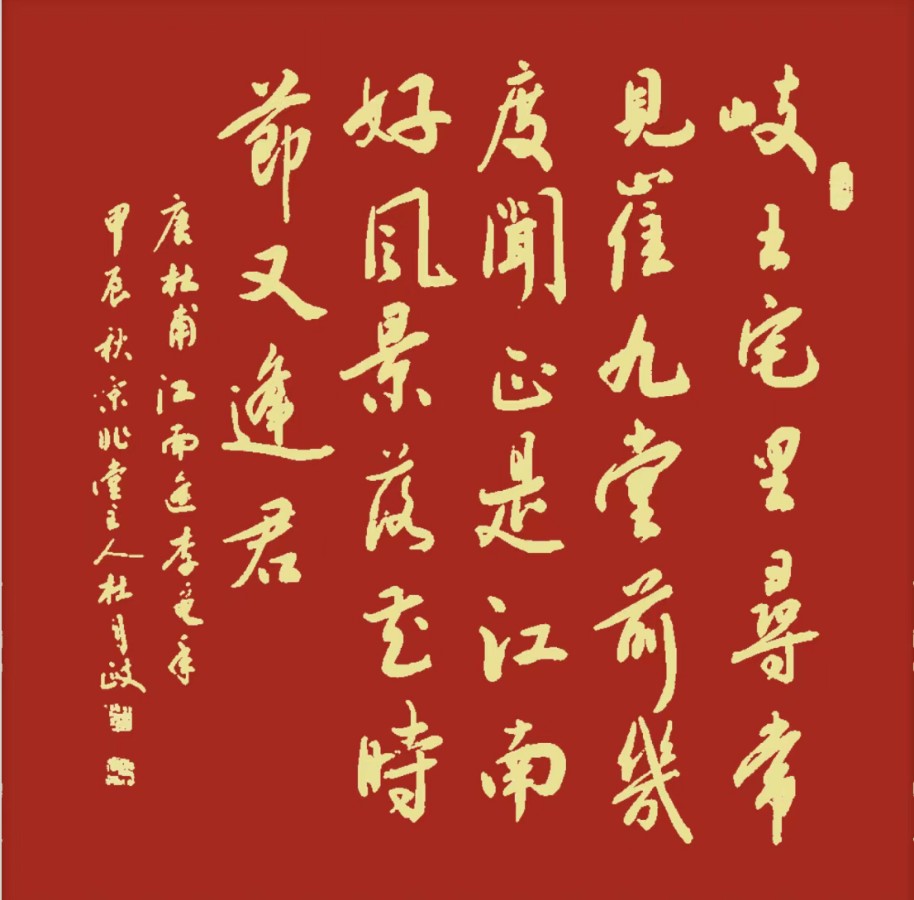 岐王宅里尋常
見崔九堂前幾
度聞正是江南
好風景落花時
節又逢君
唐杜甫江南逢李龜年
甲辰秋京兆堂主人杜月岐